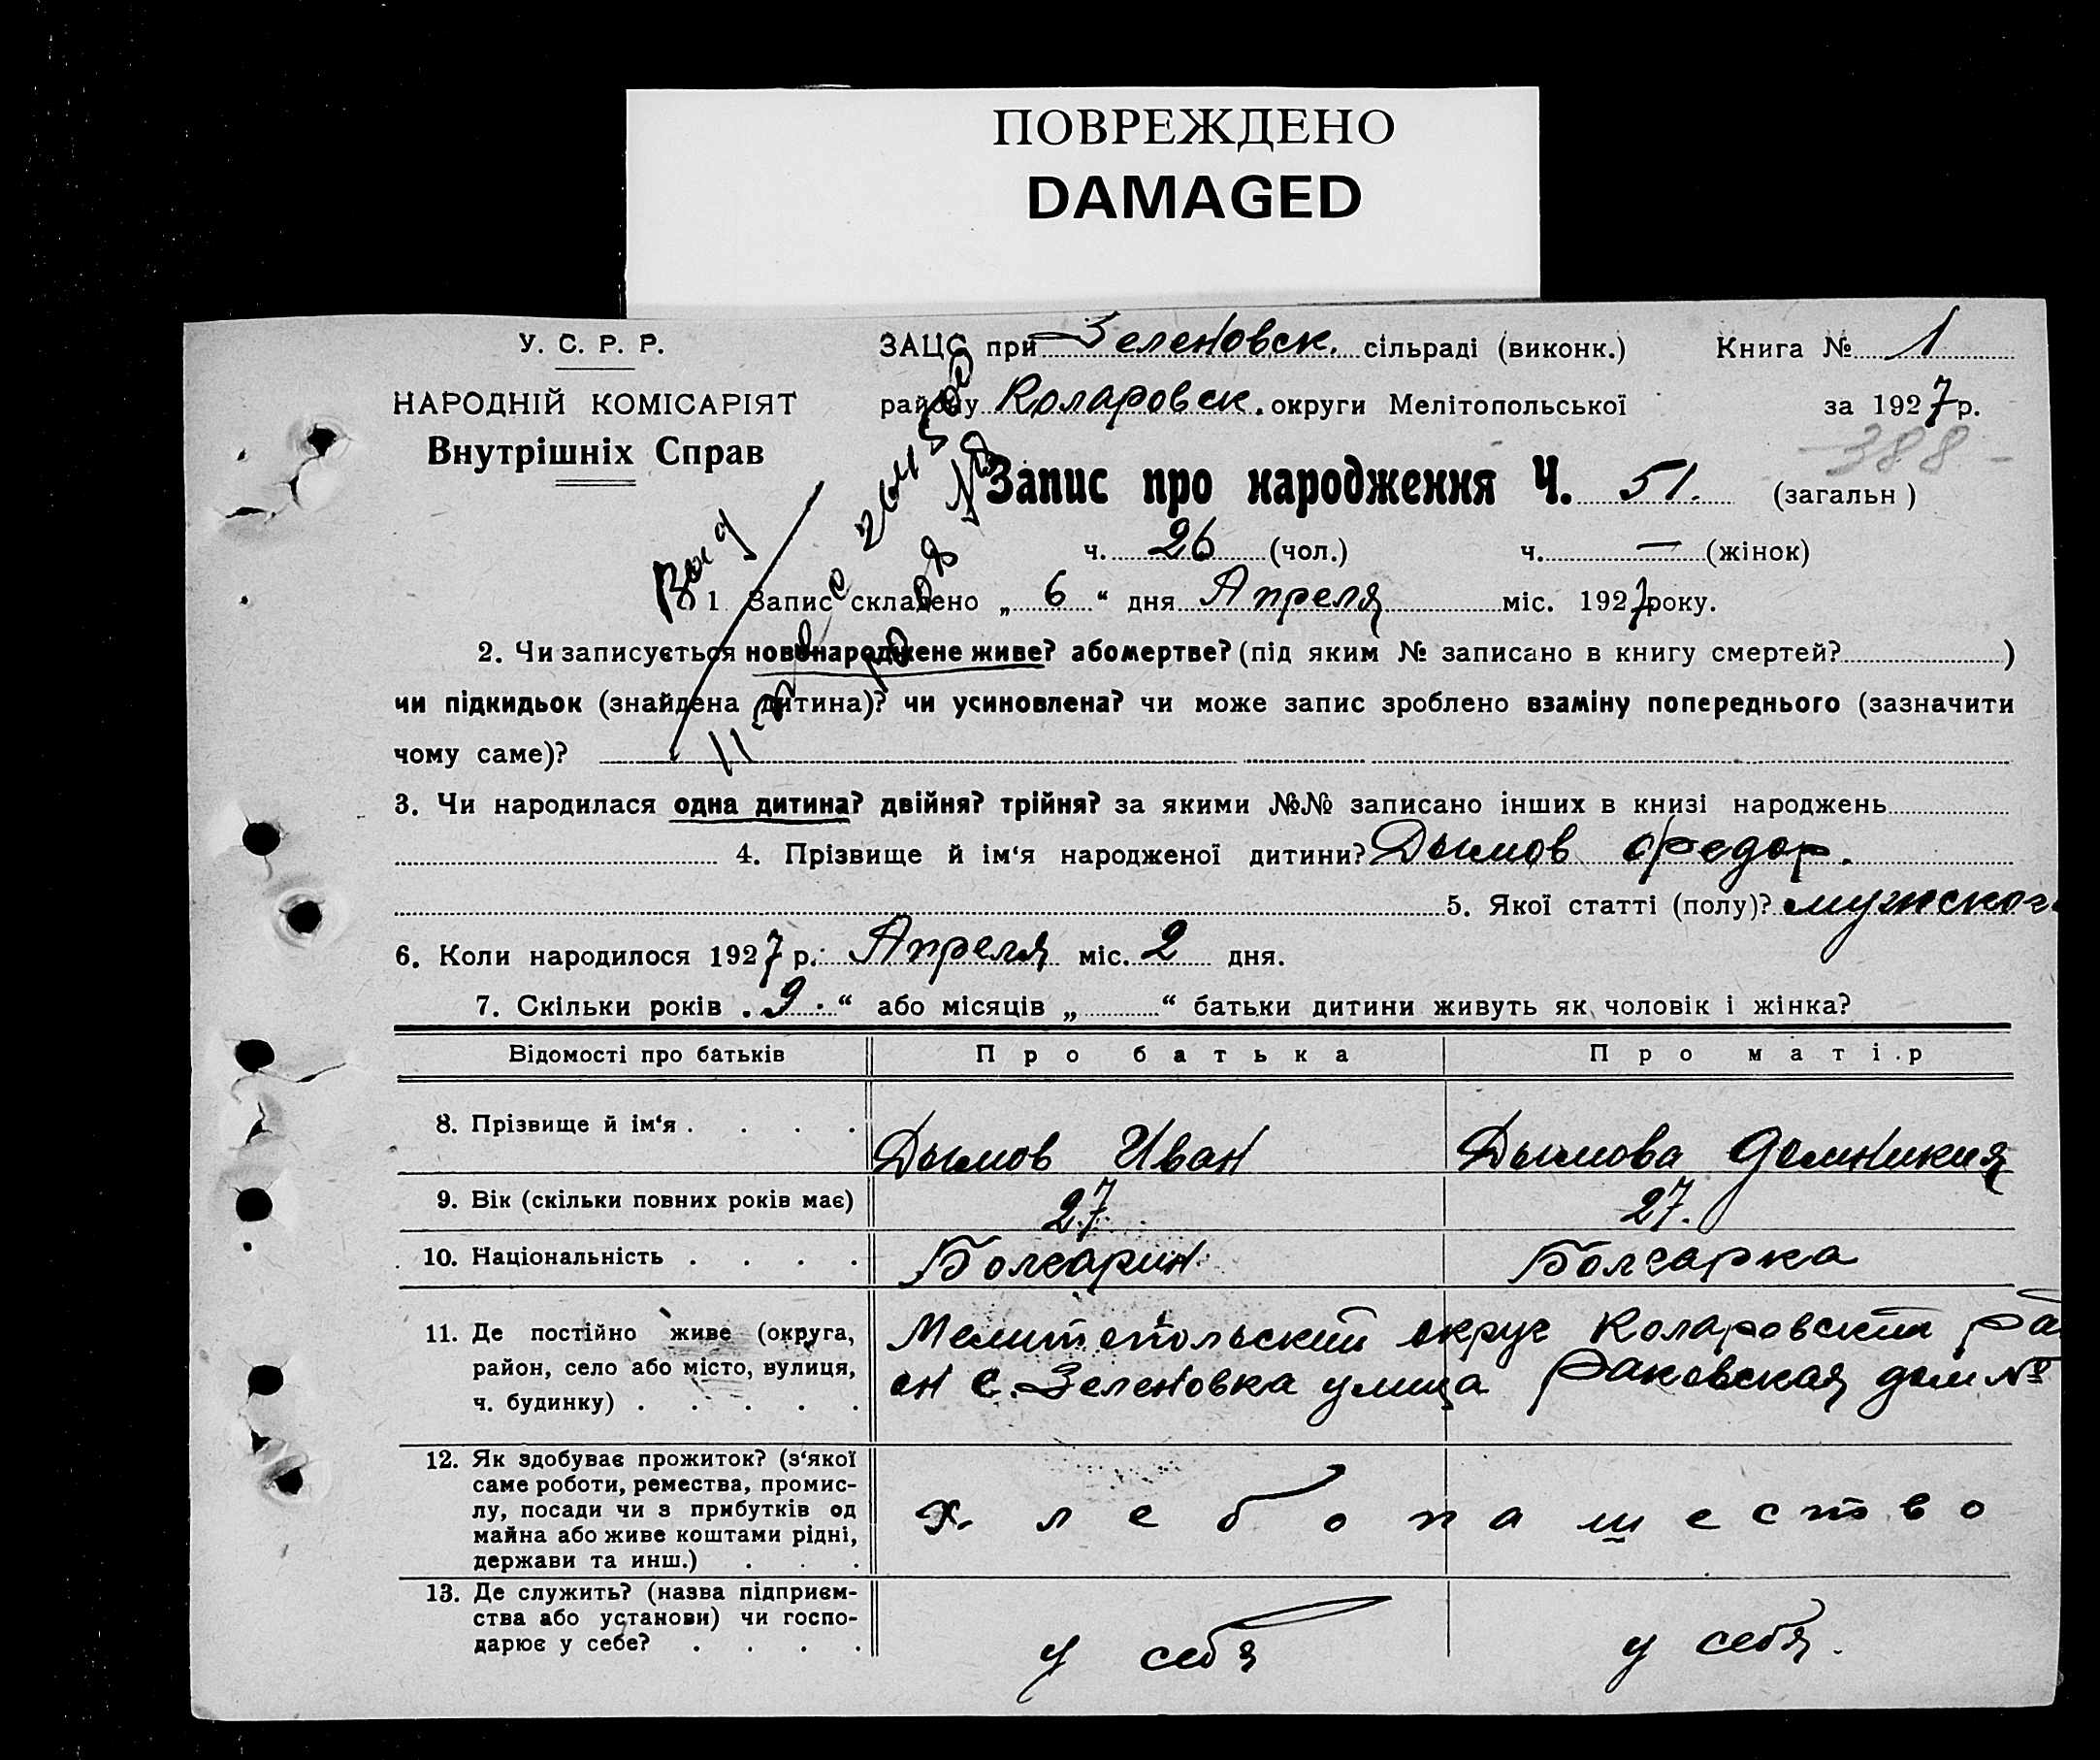 ПОВРЕЖДЕНО
DAMAGED
У. С. Р. Р.
НАРОДНІЙ КОМІСАРІЯТ
Внутрішніх Справ
ЗАЦС при Зеленовск. сільраді (виконк.) Книга № 1
району Коларовск. округи Мелітопольської за 1927 р.
388
Запис про народження Ч. 51. (загальн)
ч. 26 (чол.) ч. — (жінок)
1. Запис складено „ 6 “ дня Апреля міс. 1927 року.
2. Чи записується новонароджене живе? або мертве? (під яким № записано в книгу смертей? )
чи підкидьок (знайдена дитина)? чи усиновлена? чи може запис зроблено взаміну попереднього (зазначити
чому саме)?
3. Чи народилася одна дитина? двійня? трійня? за якими №№ записано інших в книзі народжень
4. Прізвище й ім‘я народженої дитини? Дымов Федор.
5. Якої статті (полу)? мужског
6. Коли народилося 1927 р. Апреля міс. 2 дня.
7. Скільки років „ 9 “ або місяців „ “ батьки дитини живуть як чоловік і жінка?
Відомості про батьків Про батька Про матір
8. Прізвище й ім‘я . . . . Дымов Иван Дымова Домникия
9. Вік (скільки повних років має) 27. 27.
10. Національність . . . . Болгарин Болгарка
11. Де постійно живе (округа,
район, село або місто, вулиця,
ч. будинку) . . . . .
Мелитопольский округ Коларовский ра
он с. Зеленовка улица Раковская дом №
12. Як здобуває прожиток? (з‘якої
саме роботи, ремества, промис-
лу, посади чи з прибутків од
майна або живе коштами рідні,
держави та инш.) . . .
хлебопашество
13. Де служить? (назва підприєм-
ства або установи) чи госпо-
дарює у себе? . . . .
у себя у себя.